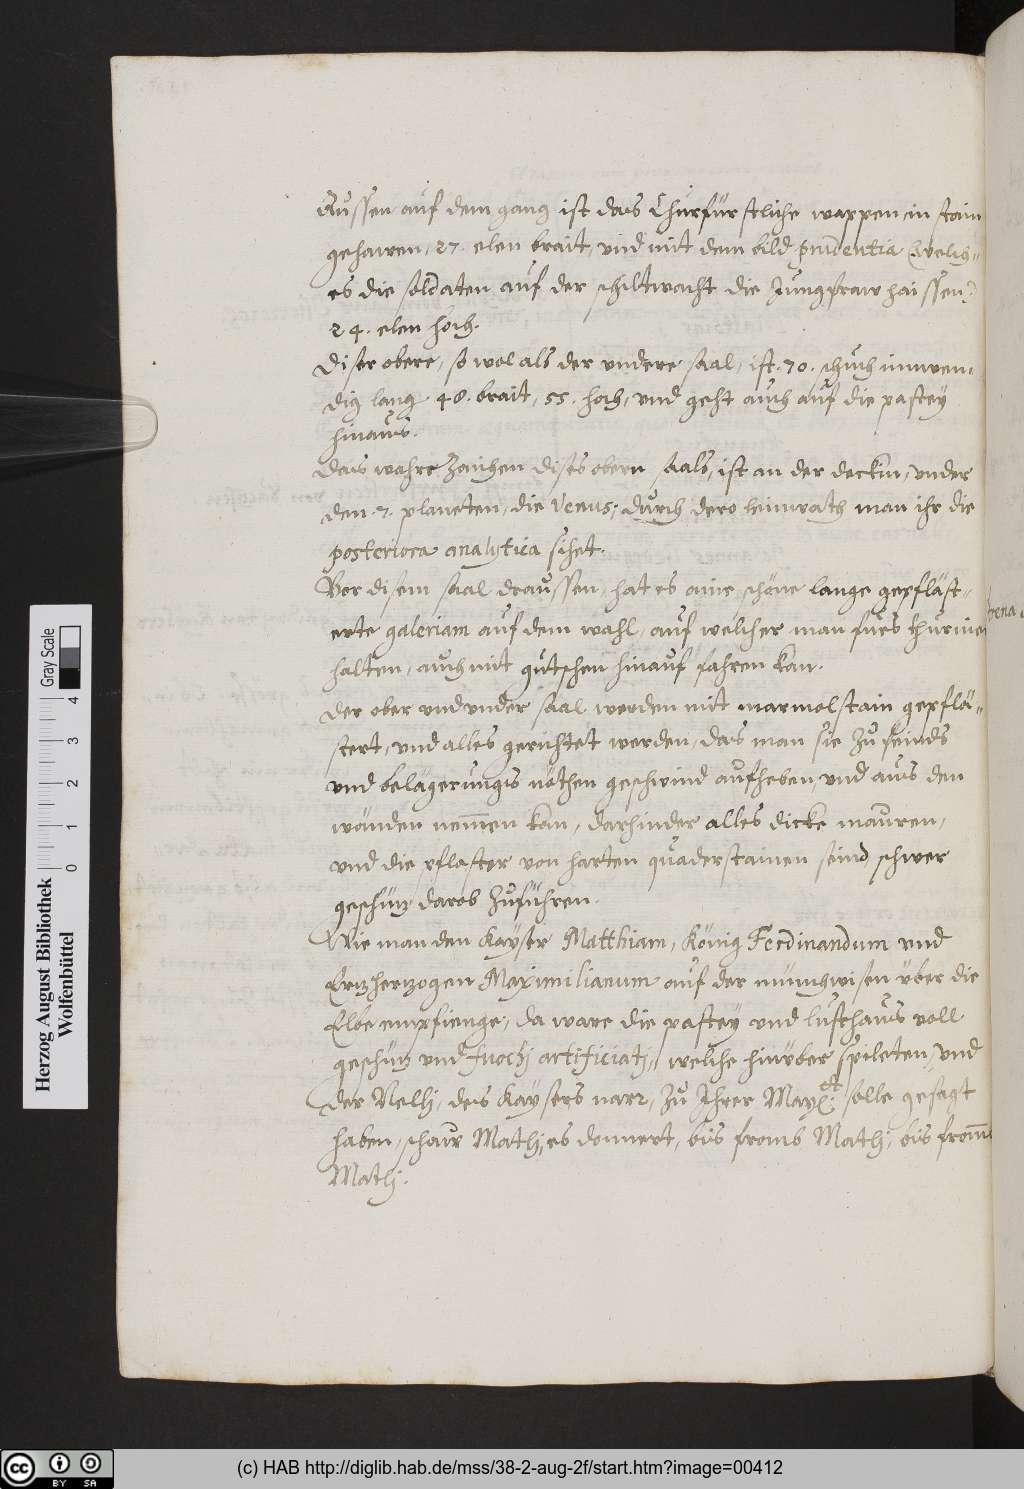 Aussen auf dem gang ist das Churfürstliche wappen in stain
gehawen, 27. elen brait, und mit dem bild prudentia (welch-
es die soldaten auf der schiltwacht die Jungfraw haissen)
24. elen hoch.
Diser obere, so wol als der undere saal, ist 70. schuch inwen-
dig lang 48. brait, 55. hoch, und geht auch auf die pastey
hinaus.
Das wahre Zaichen dises obern saals, ist an der deckin, under
den 7. planeten, die Venus, durch dero heimrath man ihr die
posteriora analytica sihet.
Vor disem saal draussen, hat es aine schöne lange gepfläst-
erte galeriam auf dem wahl, auf welcher man fues thurnier
halten, auch mit gutschen hinauf fahren kan.
Der ober und under saal werden mit marmolstain gepflä-
stert, und alles gerichtet werden, das man sie zu feinds
und belägerungs nöthen geschwind aufheben, und aus den
wänden nemmen kan, darhinder alles dicke mauren,
und die pflaster von harten quaderstainen seind, schwer
geschütz darob zuführen.
Wie man den Kayser Matthiam, König Ferdinandum und
Ertzhertzogen Maximilianum auf der münchwisen über die
Elbe empfienge, da ware die pastey und lusthaus voll
geschütz und fuochj artificiatj, welche hinüber spileten, und
der Nellj, des Kaysers narr, zu Ihrer May.tt solle gesagt
haben, schaw Mathj, es donnert, bis fromb Mathj, bis from
Mathj.
Herzog August Bibliothek
Wolfenbüttel
0 1 2 3 4
Gray Scale
CC BY SA
(c) HAB http://diglib.hab.de/mss/38-2-aug-2f/start.htm?image=00412